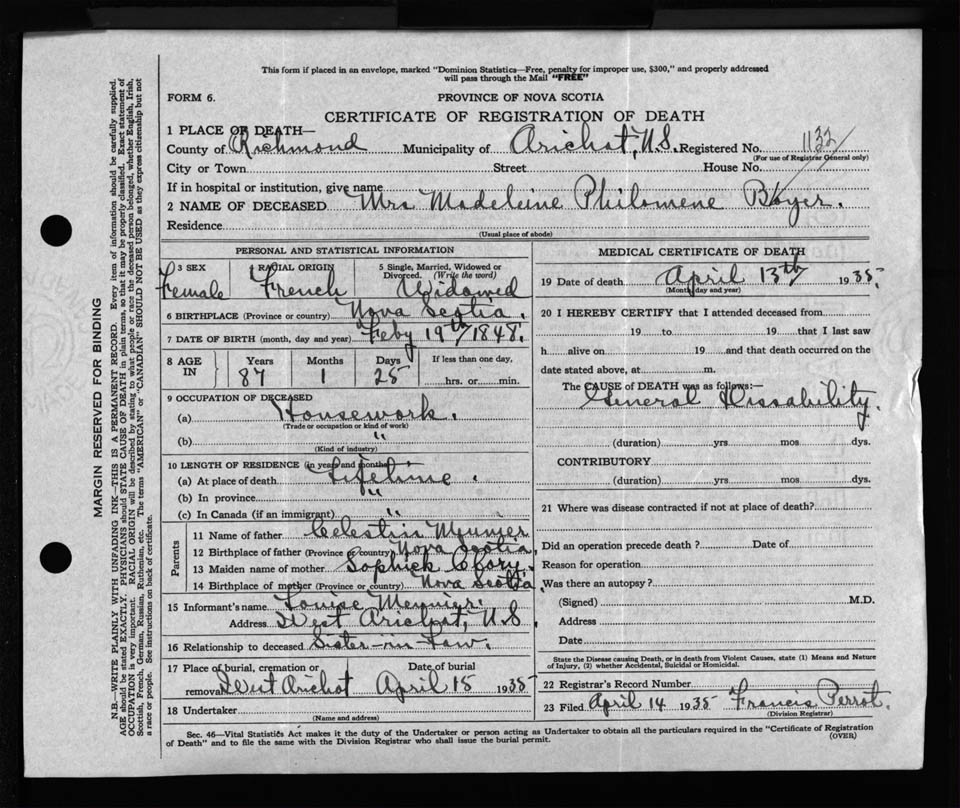 This form if placed in an envelope, marked "Dominion Statistics—Free, penalty for improper use, $300," and properly addressed
will pass through the Mail "FREE"
FORM 6.
PROVINCE OF NOVA SCOTIA
CERTIFICATE OF REGISTRATION OF DEATH
1 PLACE OF DEATH—
County of Richmond Municipality of Arichat, N.S. Registered No. 1132
(For use of Registrar General only)
City or Town Street House No.
If in hospital or institution, give name
2 NAME OF DECEASED Mrs Madeleine Philomene Boyer.
Residence
(Usual place of abode)
PERSONAL AND STATISTICAL INFORMATION
3 SEX RACIAL ORIGIN 5 Single, Married, Widowed or
Divorced. (Write the word)
Female French Widowed
6 BIRTHPLACE (Province or country) Nova Scotia.
7 DATE OF BIRTH (month, day and year) Feby 19th 1848.
8 AGE IN Years Months Days If less than one day,
87 1 25 hrs. or min.
9 OCCUPATION OF DECEASED
(a) Housework.
(Trade or occupation or kind of work)
(b) "
(Kind of industry)
10 LENGTH OF RESIDENCE (in years and months)
(a) At place of death Lifetime.
(b) In province "
(c) In Canada (if an immigrant) "
Parents
11 Name of father Celestin Meunier
12 Birthplace of father (Province or country) Nova Scotia,
13 Maiden name of mother Sophick
14 Birthplace of mother (Province or country) Nova Scotia
15 Informant's name Louise Meunier.
Address West Arichat, N.S.
16 Relationship to deceased Sister-in-Law.
17 Place of burial, cremation or Date of burial
removal West Arichat April 15 1935
18 Undertaker
(Name and address)
MEDICAL CERTIFICATE OF DEATH
19 Date of death April 13th 1935
(Month, day and year)
20 I HEREBY CERTIFY that I attended deceased from
19 to 19 that I last saw
h alive on 19 and that death occurred on the
date stated above, at m.
The CAUSE of DEATH was as follows:—
General Dissability.
(duration) yrs mos dys.
CONTRIBUTORY
(duration) yrs mos dys.
21 Where was disease contracted if not at place of death?
Did an operation precede death? Date of
Reason for operation
Was there an autopsy?
(Signed) M.D.
Address
Date
State the Disease causing Death, or in death from Violent Causes, state (1) Means and Nature
of Injury, (2) whether Accidental, Suicidal or Homicidal.
22 Registrar's Record Number
23 Filed April 14 1935 Francis Perrot.
(Division Registrar)
Sec. 46—Vital Statistics Act makes it the duty of the Undertaker or person acting as Undertaker to obtain all the particulars required in the "Certificate of Registration
of Death" and to file the same with the Division Registrar who shall issue the burial permit.
(OVER)
MARGIN RESERVED FOR BINDING
N.B.—WRITE PLAINLY WITH UNFADING INK—THIS IS A PERMANENT RECORD. Every item of information should be carefully supplied.
AGE should be stated EXACTLY. PHYSICIANS should STATE CAUSE OF DEATH in plain terms, so that it may be properly classified. Exact statement of
OCCUPATION is very important. RACIAL ORIGIN will be described by stating to what people or race the deceased person belonged, whether English, Irish,
Scottish, French, German, Russian, Ruthenian, etc. The terms "AMERICAN" or "CANADIAN" SHOULD NOT BE USED as they express citizenship but not
a race or people. See instructions on back of certificate.